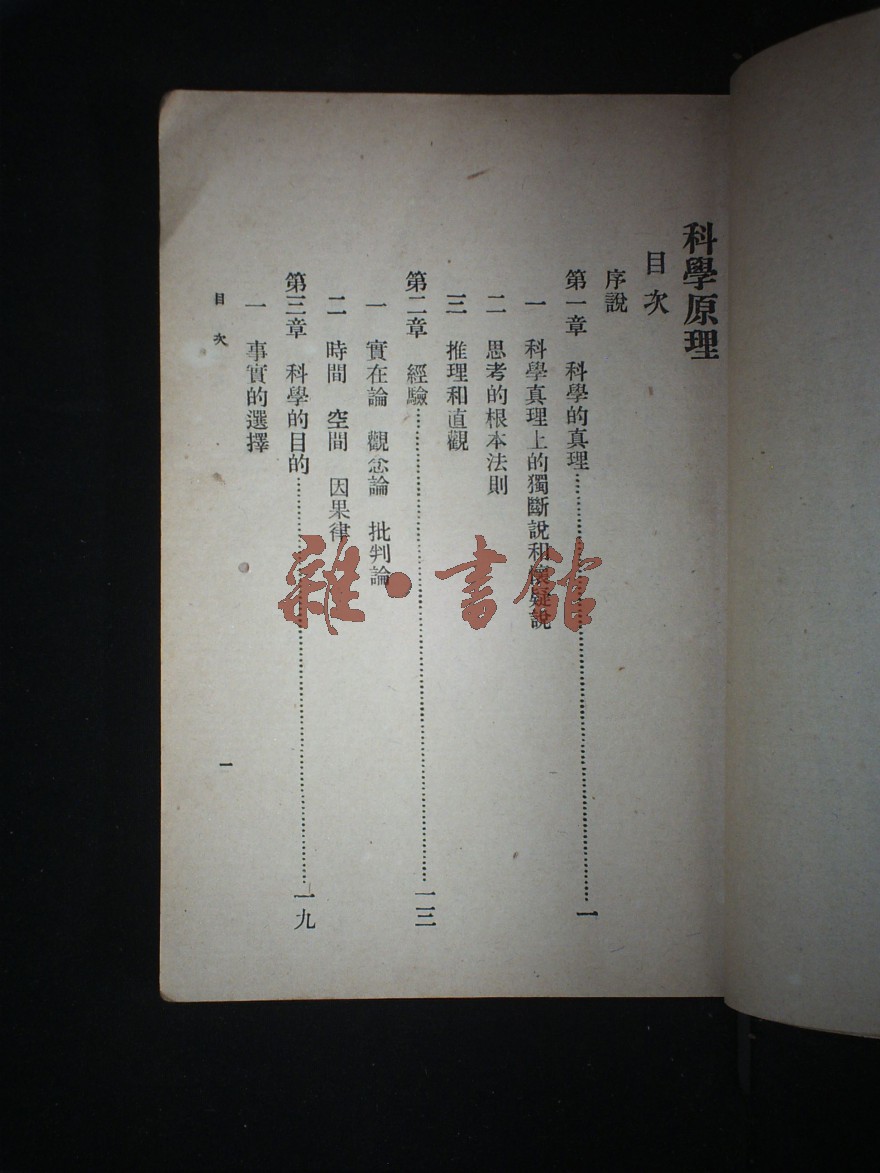 科學原理
目次
序說
第一章 科學的真理…………一
一 科學真理上的獨斷說和懷疑說
二 思考的根本法則
三 推理和直觀
第二章 經驗…………一三
一 實在論 觀念論 批判論
二 時間 空間 因果律
第三章 科學的目的…………一九
一 事實的選擇
目次
一
雜·書館